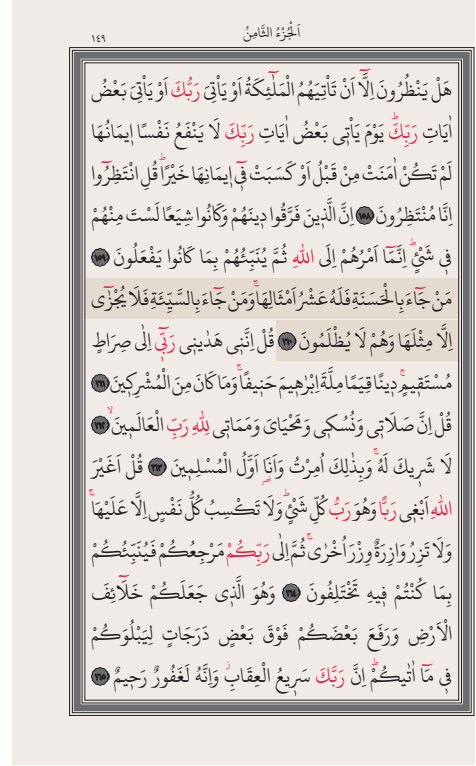 اَلْجُزْءُ الثَّامِنُ
١٤٩
هَلْ يَنْظُرُونَ اِلَّٓا اَنْ تَأْتِيَهُمُ الْمَلٰٓئِكَةُ اَوْ يَأْتِيَ رَبُّكَ اَوْ يَأْتِيَ بَعْضُ
اٰيَاتِ رَبِّكَۜ يَوْمَ يَأْتِى بَعْضُ اٰيَاتِ رَبِّكَ لَا يَنْفَعُ نَفْسًا اِيمَانُهَا
لَمْ تَكُنْ اٰمَنَتْ مِنْ قَبْلُ اَوْ كَسَبَتْ فٖٓى اِيمَانِهَا خَيْرًاۜ قُلِ انْتَظِرُٓوا
اِنَّا مُنْتَظِرُونَ ﴿١٥٨﴾ اِنَّ الَّذٖينَ فَرَّقُوا دٖينَهُمْ وَكَانُوا شِيَعًا لَسْتَ مِنْهُمْ
فٖى شَىْءٍۜ اِنَّمَٓا اَمْرُهُمْ اِلَى اللّٰهِ ثُمَّ يُنَبِّئُهُمْ بِمَا كَانُوا يَفْعَلُونَ ﴿١٥٩﴾
مَنْ جَٓاءَ بِالْحَسَنَةِ فَلَهُ عَشْرُ اَمْثَالِهَاۚ وَمَنْ جَٓاءَ بِالسَّيِّئَةِ فَلَا يُجْزٰٓى
اِلَّا مِثْلَهَا وَهُمْ لَا يُظْلَمُونَ ﴿١٦٠﴾ قُلْ اِنَّنٖى هَدٰينٖى رَبّٖٓى اِلٰى صِرَاطٍ
مُسْتَقٖيمٍۚ دٖينًا قِيَمًا مِلَّةَ اِبْرٰهٖيمَ حَنٖيفًاۚ وَمَا كَانَ مِنَ الْمُشْرِكٖينَ ﴿١٦١﴾
قُلْ اِنَّ صَلَاتٖى وَنُسُكٖى وَمَحْيَاىَ وَمَمَاتٖى لِلّٰهِ رَبِّ الْعَالَمٖينَۙ ﴿١٦٢﴾
لَا شَرٖيكَ لَهُۚ وَبِذٰلِكَ اُمِرْتُ وَاَنَا۬ اَوَّلُ الْمُسْلِمٖينَ ﴿١٦٣﴾ قُلْ اَغَيْرَ
اللّٰهِ اَبْغٖى رَبًّا وَهُوَ رَبُّ كُلِّ شَىْءٍۜ وَلَا تَكْسِبُ كُلُّ نَفْسٍ اِلَّا عَلَيْهَاۚ
وَلَا تَزِرُ وَازِرَةٌ وِزْرَ اُخْرٰىۚ ثُمَّ اِلٰى رَبِّكُمْ مَرْجِعُكُمْ فَيُنَبِّئُكُمْ
بِمَا كُنْتُمْ فٖيهِ تَخْتَلِفُونَ ﴿١٦٤﴾ وَهُوَ الَّذٖى جَعَلَكُمْ خَلَٓائِفَ
الْاَرْضِ وَرَفَعَ بَعْضَكُمْ فَوْقَ بَعْضٍ دَرَجَاتٍ لِيَبْلُوَكُمْ
فٖى مَٓا اٰتٰيكُمْۜ اِنَّ رَبَّكَ سَرٖيعُ الْعِقَابِۘ وَاِنَّهُ لَغَفُورٌ رَحٖيمٌ ﴿١٦٥﴾